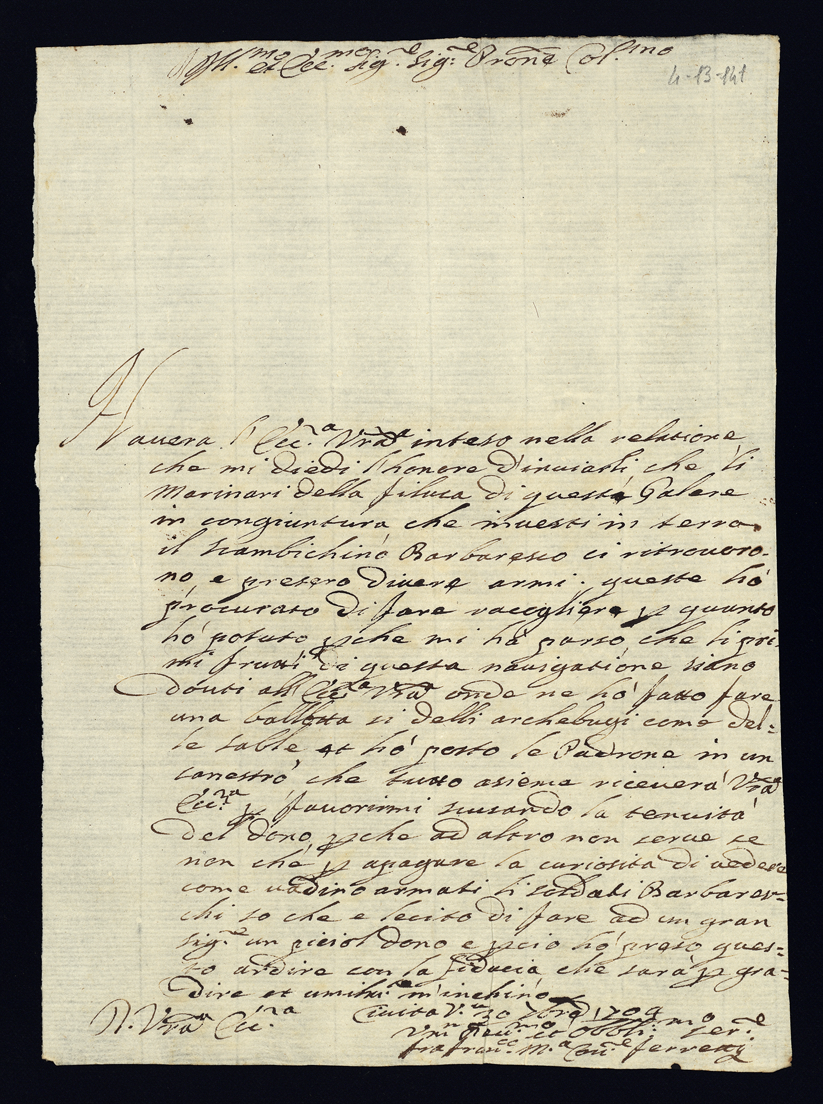 Ill.mo et Ecc.mo Sig.e Sig.e Prone Col.mo
4-13-141
Havera l'Ecc.za Vra inteso nella relatione
che mi diedi l'honore d'inviarli che li
Marinari della filuca di queste Galere
in congiuntura che investi in terra
il Zambichino Barbaresco ci ritrovoro-
no e presero divere armi. queste hó
procurato di fare raccogliere p quanto
hó potuto pche mi há parso che li pri-
mi frutti di questa navigatione siano
douti all'Ecc.za Vra onde ne hó fatto fare
una ballotta si delli archebugi come del=
le sable et hó posto le Padrone in un
canestro che tutto asieme riceverá Vra
Ecc.za p favorirmi scusando la tenuitá
del dono pche ad altro non serve se
non che p apagare la curiositá di vedere
come vadino armati li soldati Barbares=
chi so che e lecito di fare ad un gran
Sig.e un piciol dono e pcio hó preso ques=
to ardire con la fiducia che sará p gra=
dire et umilm.e m'inchino
D. Vra Ecc.za Civita V.a 30 1709
Vm Dev.mo et Obbli.mo Ser.e
fra Fran.co M.a Ferretti